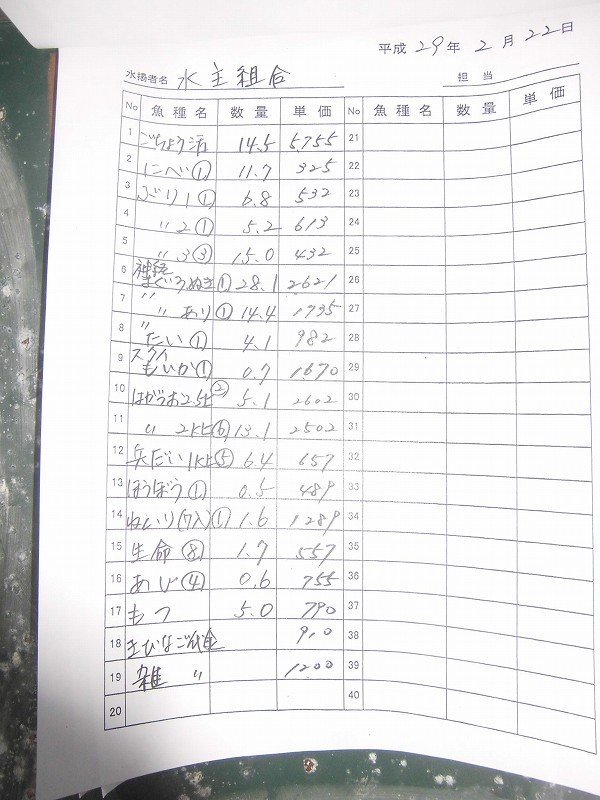 平成 29年 2月 22日
水揚者名 水主組合 担当
No 魚種名 数量 単価 No 魚種名 数量 単価
1 ごちょう活 14.5 5755 21
2 にべ① 11.7 325 22
3 ぶり1① 6.8 532 23
4 〃2① 5.2 613 24
5 〃3③ 15.0 432 25
6 神経まぐろぬき① 28.1 2621 26
7 〃 〃あり① 14.4 1735 27
8 〃たい① 4.1 982 28
9 スクイもいか① 0.7 1670 29
10 はがつお2.5上② 5.1 2602 30
11 〃 2K上⑥ 13.1 2502 31
12 兵だい1K上⑤ 6.4 657 32
13 ほうぼう① 0.5 489 33
14 (7入)① 1.6 1289 34
15 生命⑧ 1.7 557 35
16 あじ④ 0.6 755 36
17 もつ 5.0 790 37
18 きびなご代金 910 38
19 雑 〃 1200 39
20 40